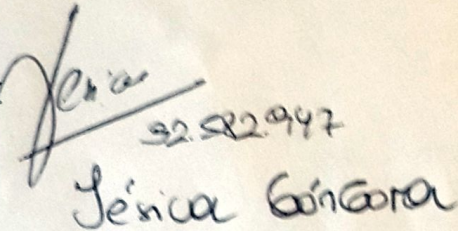 Jesica
32.582.947
Jésica Góngora